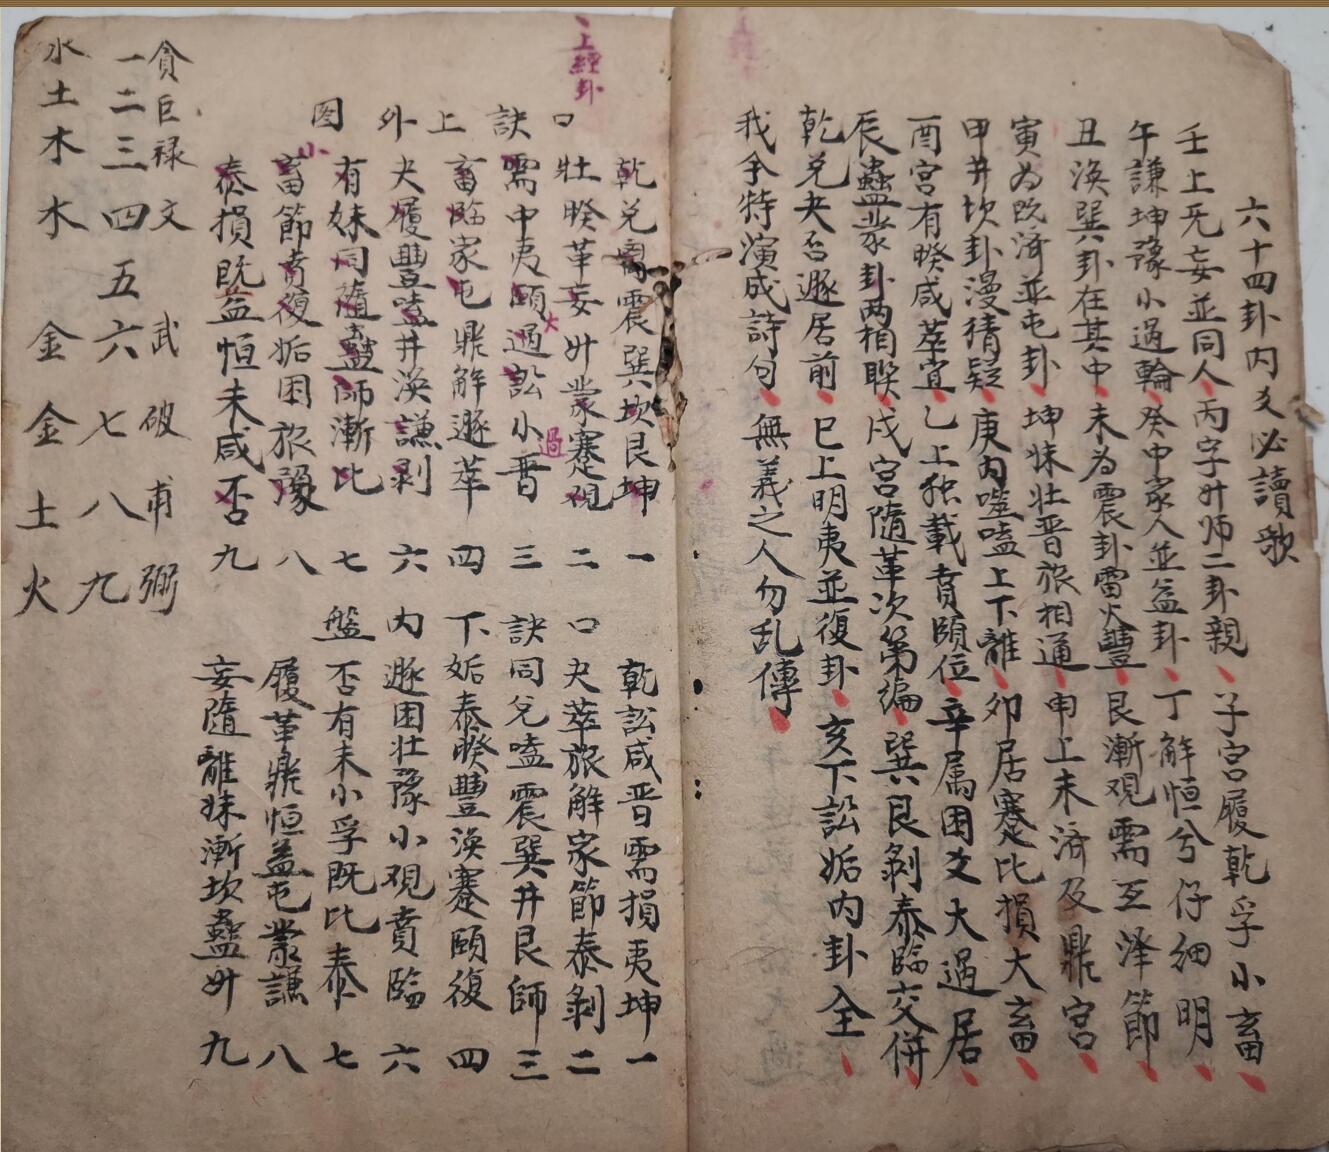 六十四卦内爻必讀歌
壬上旡妄並同人 丙字升师二卦親 子宫履乾孚小畜
午謙坤豫小過輪 癸中家人並益卦 丁解恒兮仔细明
丑渙巽卦在其中 未为震卦雷火豐 艮漸观需互泽節
寅为既済並屯卦 坤妹壮晋旅相通 申上未済及鼎宫
甲井坎卦漫猜疑 庚内噬嗑上下離 卯居蹇比損大畜
酉宫有睽咸萃宜 乙上独載賁頤位 辛属困爻大過居
辰蠱蒙卦两相联 戌宫隨革次第编 巽艮剝泰臨交併
乾兑夬否遯居前 巳上明夷並復卦 亥下訟姤内卦全
我今特演成詩句 無義之人勿乱傳
上經卦
口訣上外图
乾兑离震巽坎艮坤 一
壮睽革妄升蒙蹇观 二
需中夷頤大過訟小過晋 三
畜臨家屯鼎解遯萃 四
夬履豐嗑井渙謙剥 六
有妹同随蠱师漸比 七
小畜節賁復姤困旅豫 八
泰損既益恒未咸否 九
口訣下内盤
乾訟咸晋需損夷坤 一
夬萃旅解家節泰剝 二
同兑嗑震巽井艮師 三
姤泰睽豐渙蹇頤復 四
遯困壮豫小观賁臨 六
否有未小孚既比泰 七
履革鼎恒益屯蒙謙 八
妄隨離妹漸坎蠱升 九
貪巨禄文武破甫弼
一二三四五六七八九
水土木木金金土火